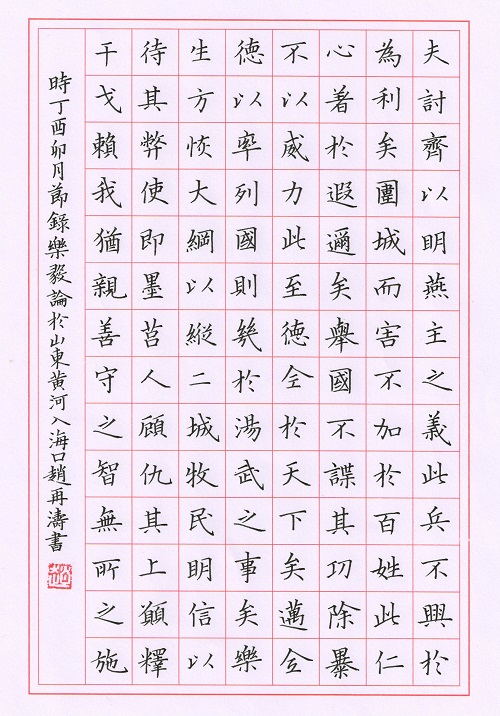 夫討齊以明燕主之義此兵不興於
為利矣圍城而害不加於百姓此仁
心著於遐邇矣舉國不謀其功除暴
不以威力此至德全於天下矣邁全
德以率列國則幾於湯武之事矣樂
生方恢大綱以縱二城牧民明信以
待其弊使即墨莒人顧仇其上願釋
干戈賴我猶親善守之智無所之施
時丁酉卯月節錄樂毅論於山東黃河入海口趙再濤書